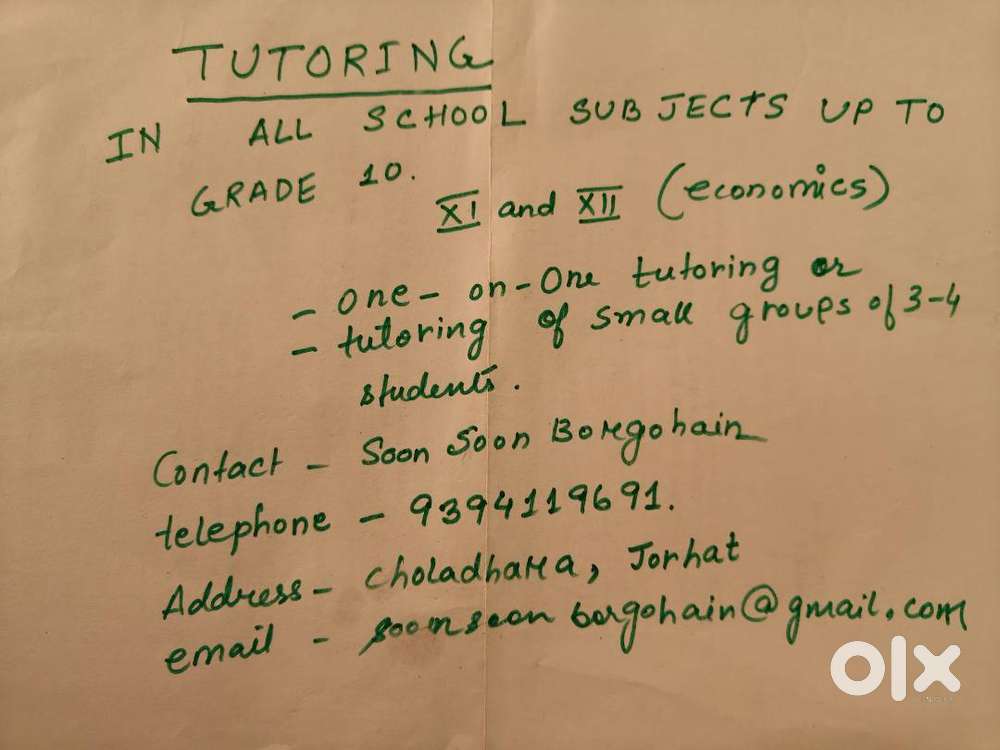 TUTORING
IN ALL SCHOOL SUBJECTS UP TO
GRADE 10.
XI and XII (economics)
- One-on-One tutoring or
- tutoring of small groups of 3-4
students.
Contact - Soon Soon Borgohain
telephone - 9394119691.
Address - Choladhara, Jorhat
email - soonsoonborgohain@gmail.com
olx